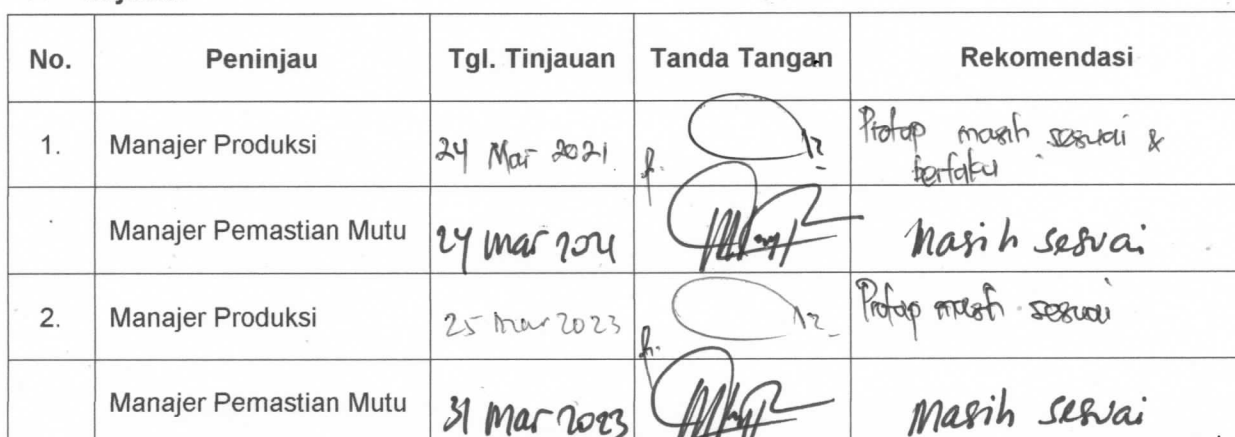 No. Peninjau Tgl. Tinjauan Tanda Tangan Rekomendasi
1. Manajer Produksi 24 Mar 2021 Protap masih sesuai &
berlaku
Manajer Pemastian Mutu 24 Mar 2021 Masih sesuai
2. Manajer Produksi 25 Mar 2023 Protap masih sesuai
Manajer Pemastian Mutu 31 Mar 2023 Masih sesuai